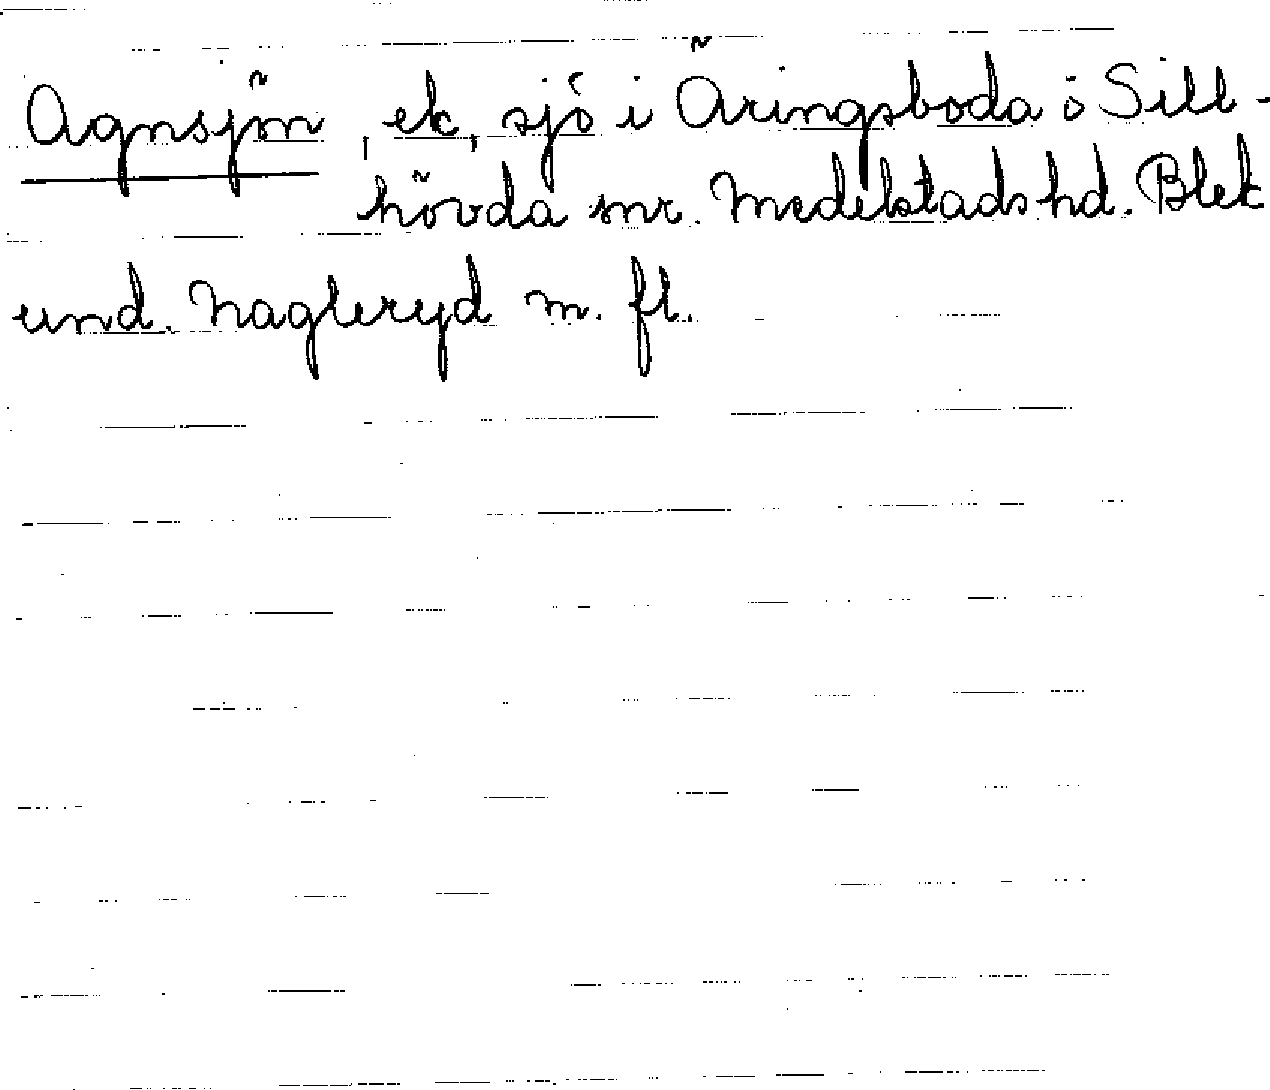 Agnsjön, ek, sjö i Äringsboda i Sill-
hövda snr. Medelstads hd. Blek
und. Nagleryd m. fl.